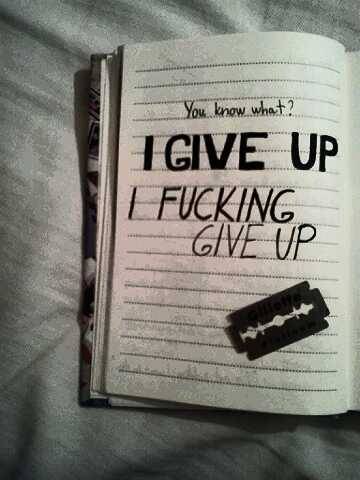 You know what?
I GIVE UP
I FUCKING
GIVE UP
Gillette
Platinum